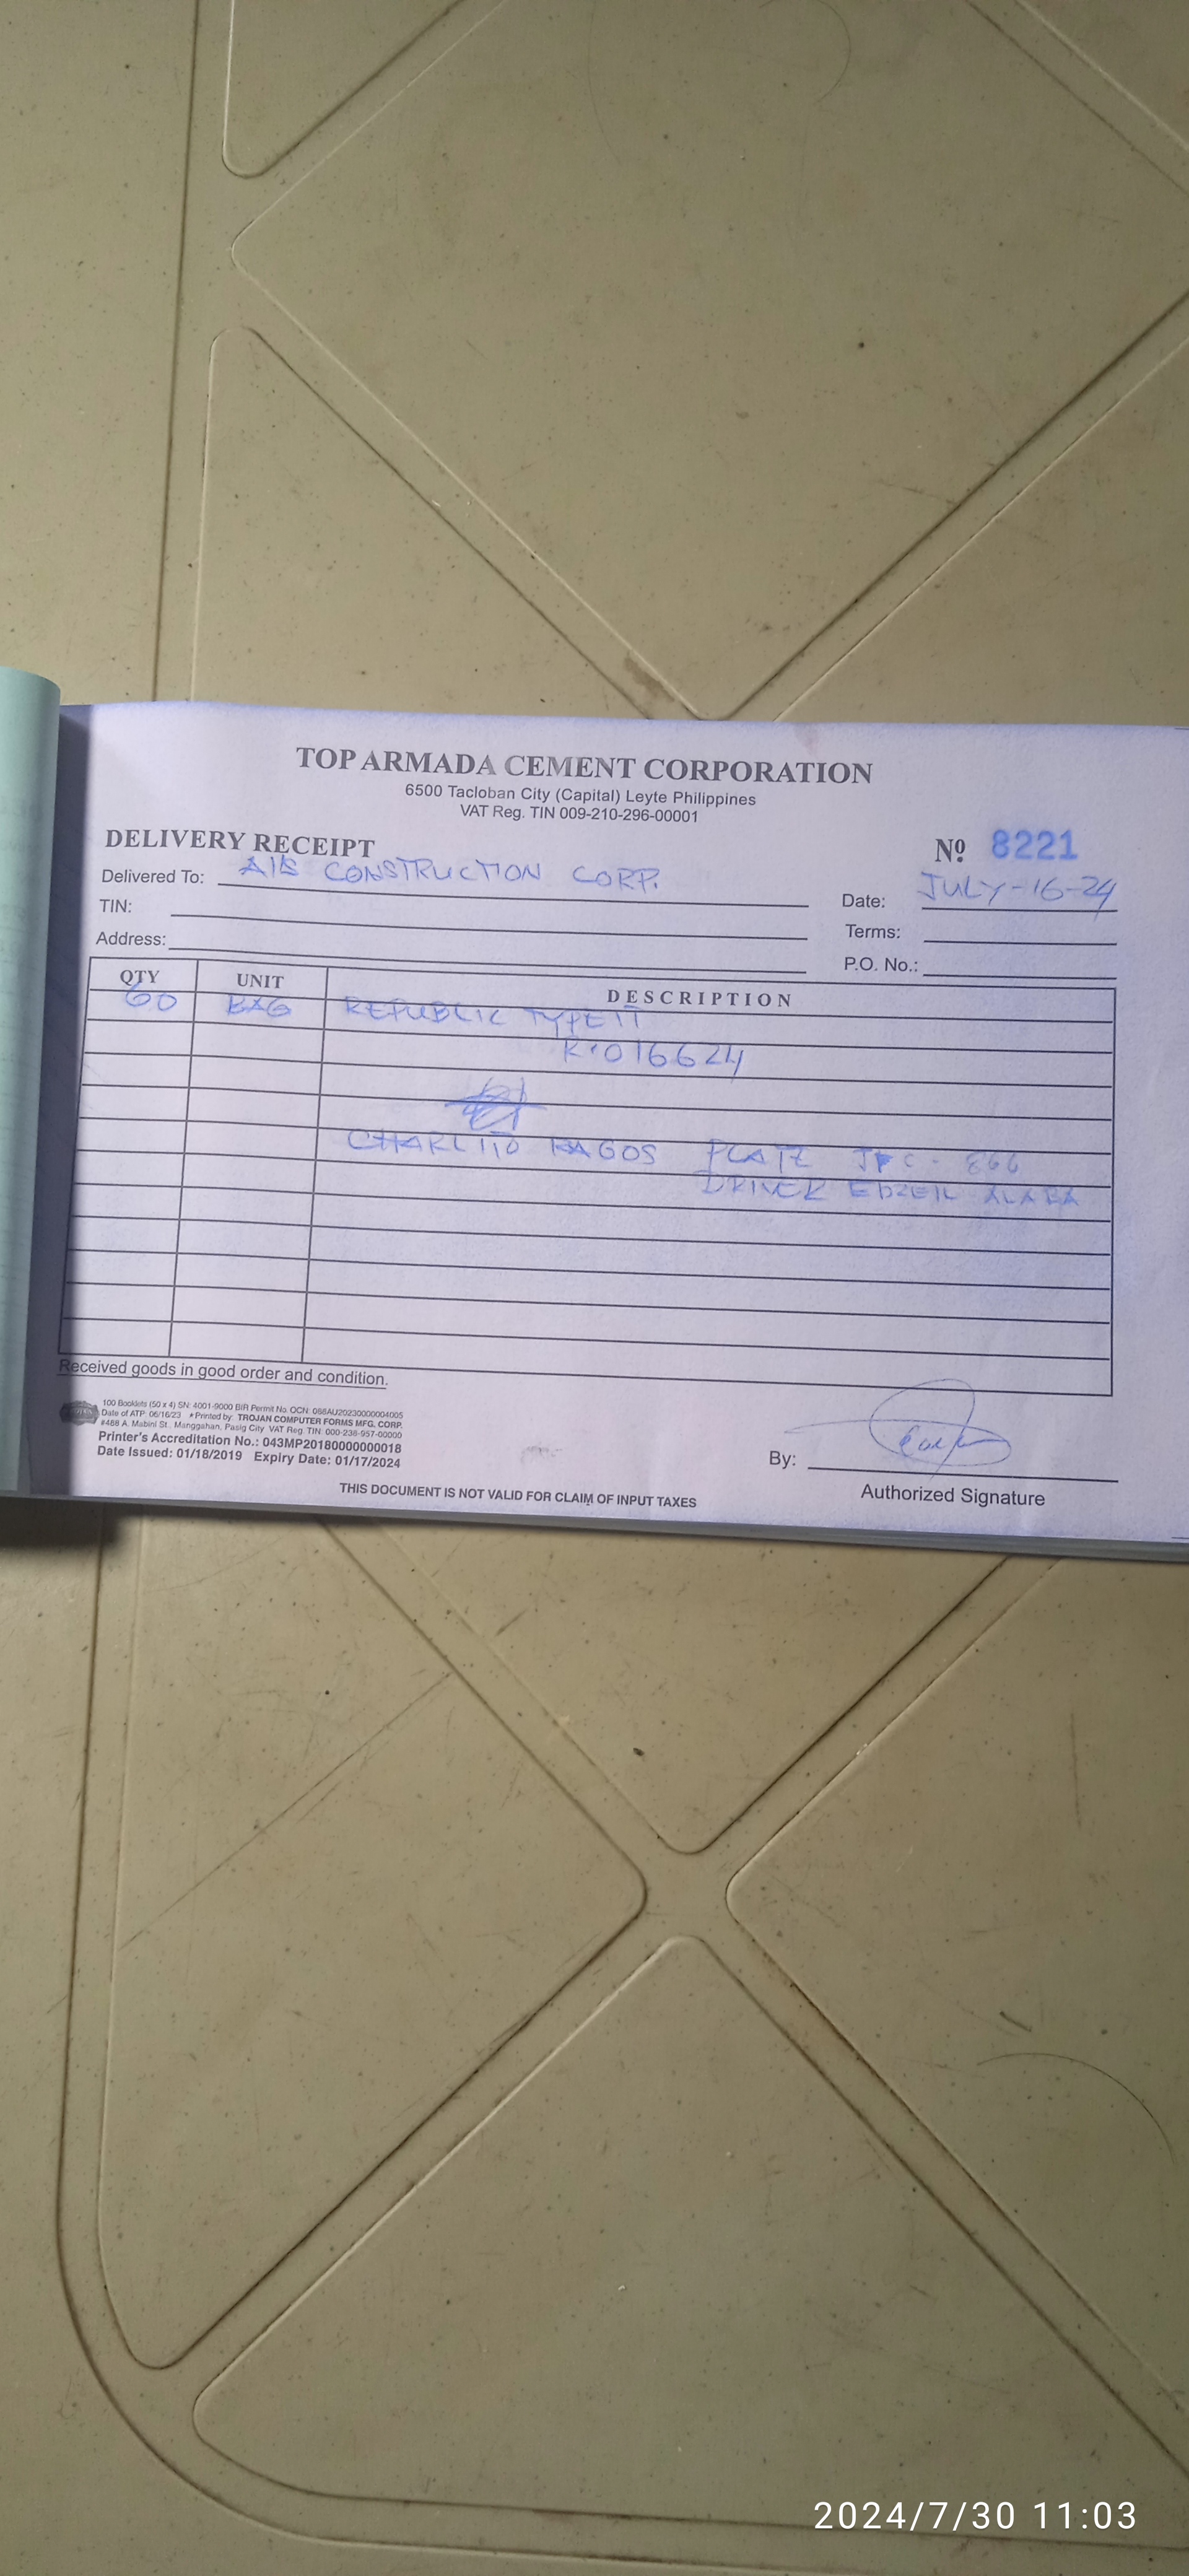 TOP ARMADA CEMENT CORPORATION
6500 Tacloban City (Capital) Leyte Philippines
VAT Reg. TIN 009-210-296-00001
DELIVERY RECEIPT
Nº 8221
Delivered To: CONSTRUCTION CORP.
Date: JULY-16-24
TIN:
Terms:
Address:
P.O. No.:
QTY UNIT DESCRIPTION
60 BAG REPUBLIC TYPE 1T
R.016624
CHARLITO RAGOS PLATE 866
DRIVER
Received goods in good order and condition.
100 Booklets (50 x 4) SN: 4001-9000 BIR Permit No. OCN: 088AU20230000004005
Date of ATP: 06/16/23 *Printed by: TROJAN COMPUTER FORMS MFG. CORP.
#488 A. Mabini St., Manggahan, Pasig City VAT Reg. TIN: 000-238-957-00000
Printer's Accreditation No.: 043MP20180000000018
Date Issued: 01/18/2019 Expiry Date: 01/17/2024
By:
Authorized Signature
THIS DOCUMENT IS NOT VALID FOR CLAIM OF INPUT TAXES
2024/7/30 11:03